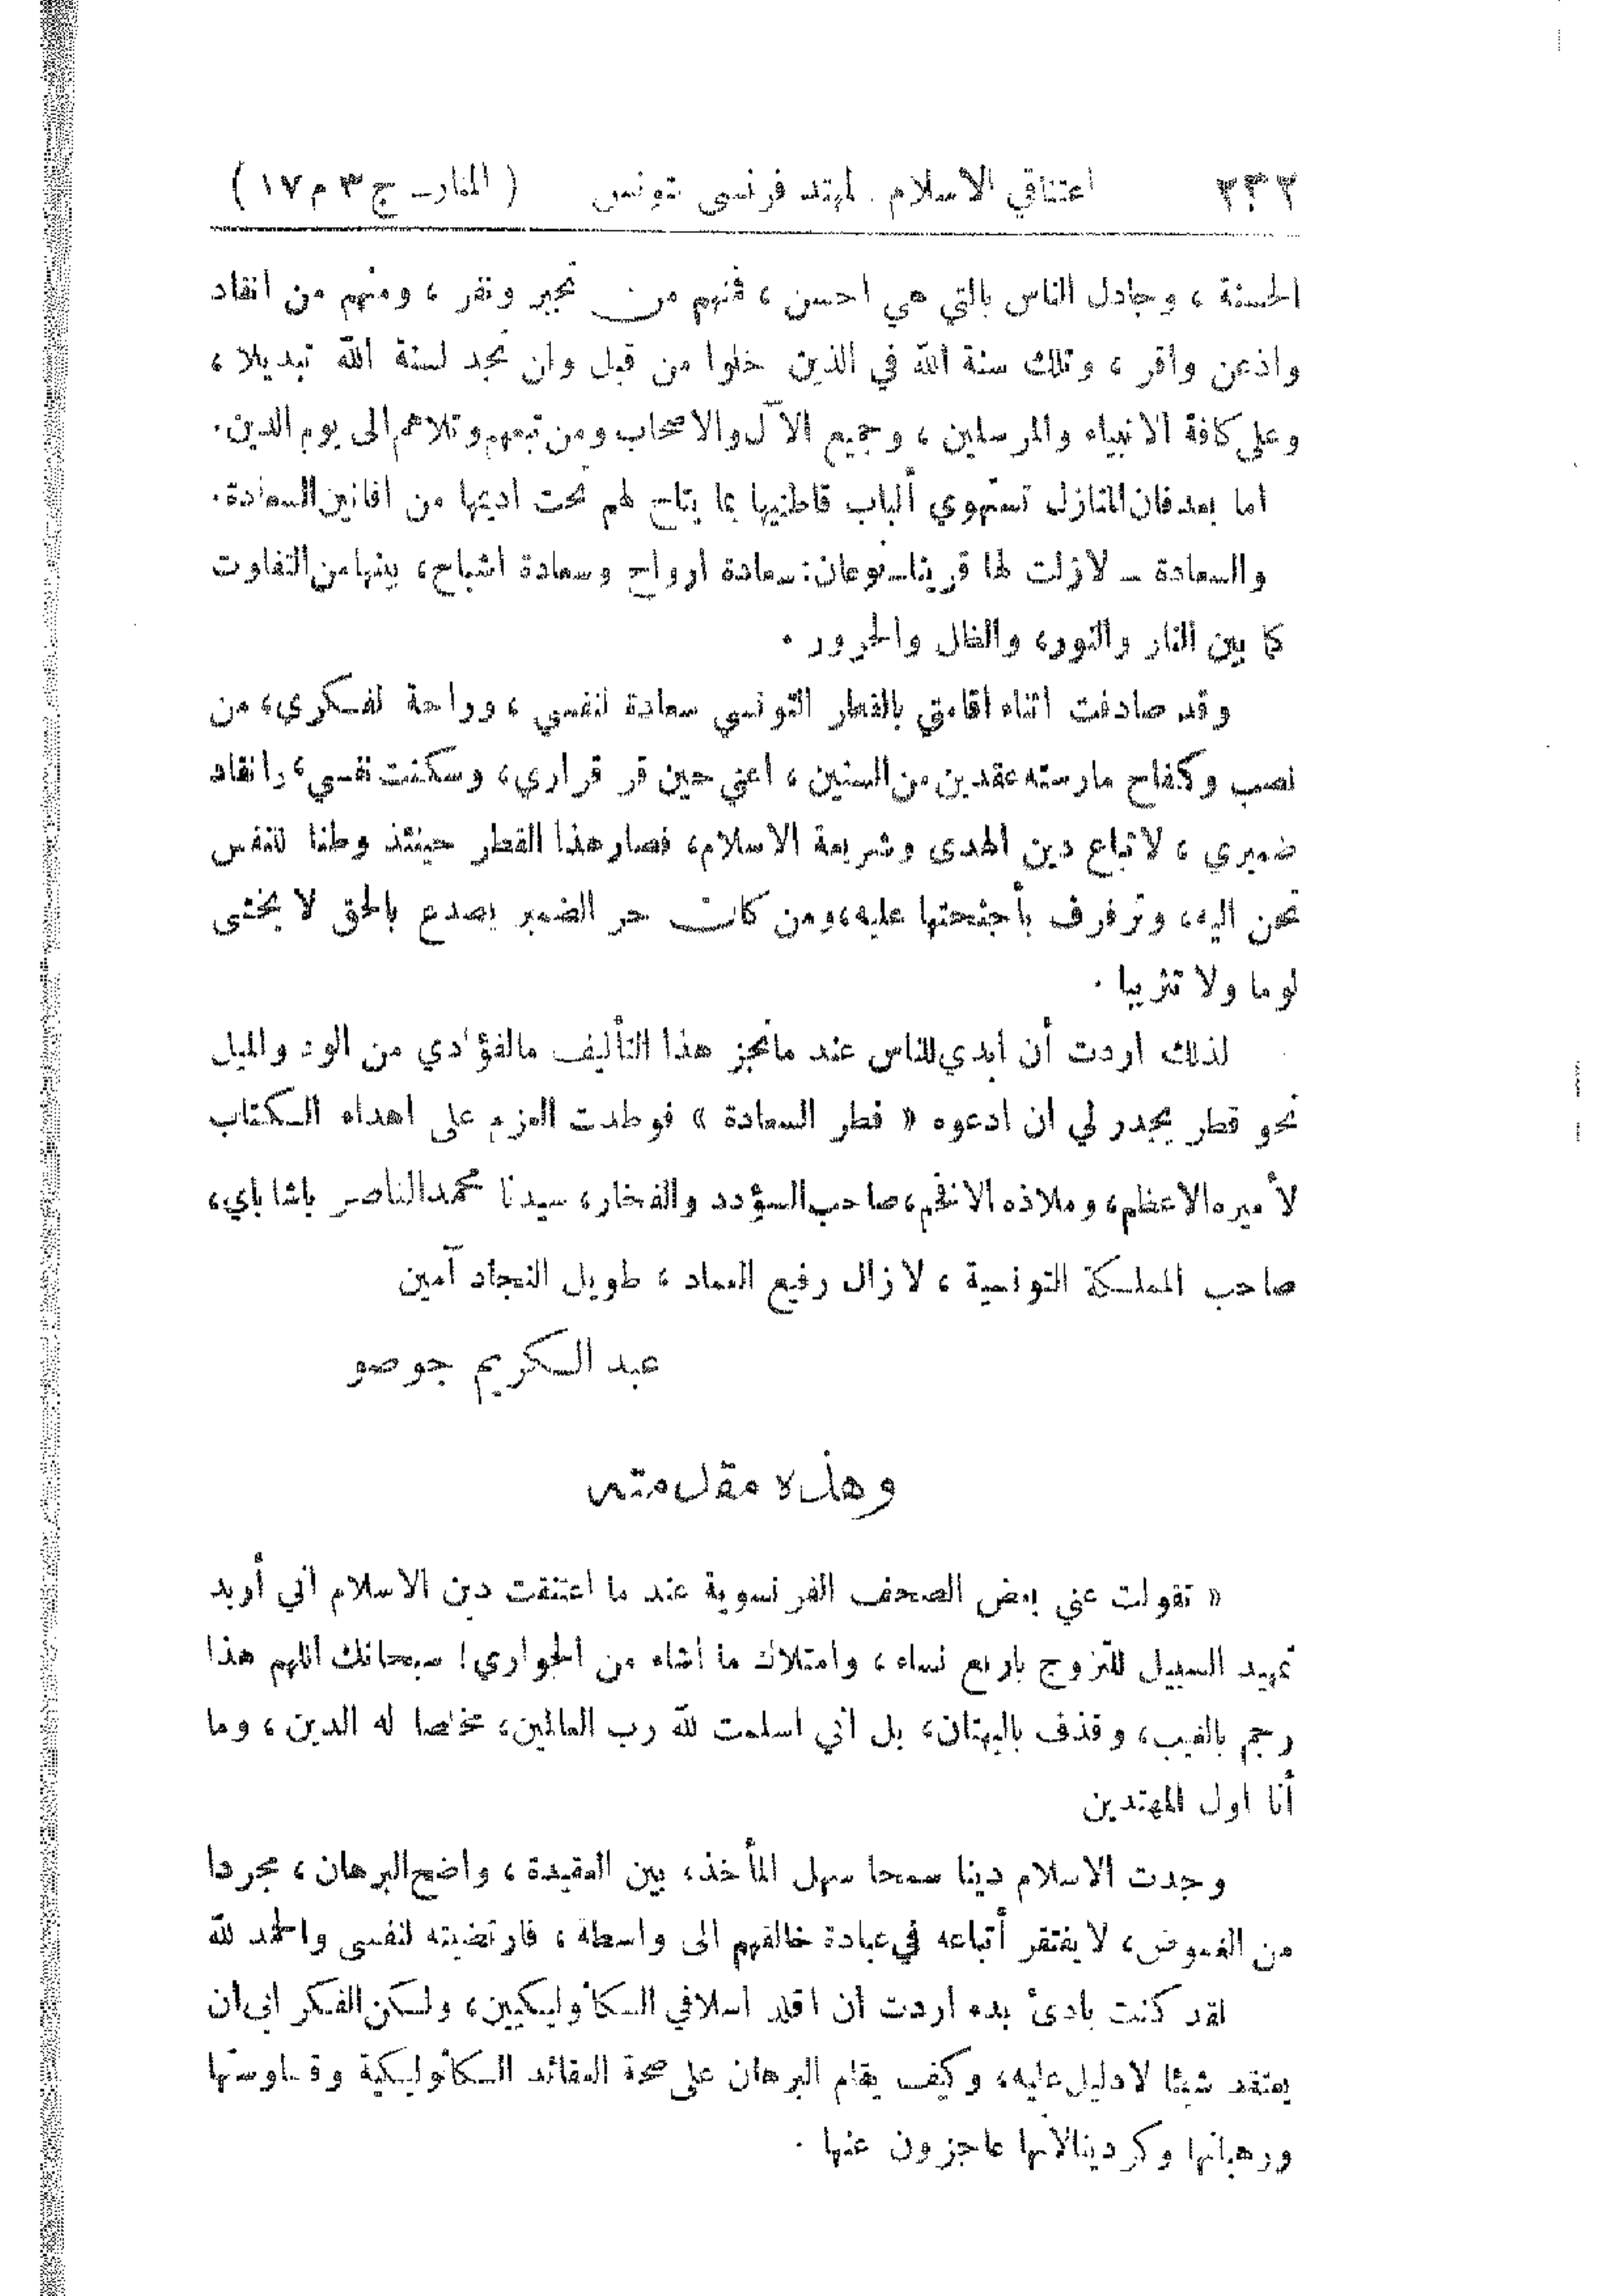 ٢٣٢ اعتناقي الاسلام. لمهتد فرنسي بتونس ( المنار ـ ج ٣ م ١٧ )
الحسنة ، وجادل الناس بالتي هي احسن ، فمنهم من تجبر ونفر ، ومنهم من انقاد
واذعن واقر ، وتلك سنة الله في الذين خلوا من قبل ولن تجد لسنة الله تبديلا ،
وعلى كافة الانبياء والمرسلين ، وجميع الآل والاصحاب ومن تبعهم وتلاهم الى يوم الدين.
اما بعد فان المنازل تستهوي ألباب قاطنيها بما يتاح لهم تحت اديمها من افانين السعادة.
والسعادة ـ لازلت لها قرينا ـ نوعان: سعادة ارواح وسعادة اشباح، بينهما من التفاوت
كما بين النار والنور، والظل والحرور .
وقد صادفت اثناء اقامتي بالقطر التونسي سعادة لنفسي ، وراحة لفكري، من
نصب وكفاح مارسته عقدين من السنين ، اعني حين قر قراري، وسكنت نفسي، وانقاد
ضميري ، لاتباع دين الهدى وشريعة الاسلام، فصار هذا القطر حينئذ وطنا للنفس
تحن اليه، وترفرف بأجنحتها عليه، ومن كان حر الضمير يصدع بالحق لا يخشى
لوما ولا تثريبا .
لذلك اردت أن ابدي للناس عند ما نجز هذا التأليف ما لفؤادي من الود والميل
نحو قطر يجدر لي ان ادعوه « قطر السعادة » فوطدت العزم على اهداء الكتاب
لأميره الاعظم، وملاذه الافخم، صاحب السؤدد والفخار، سيدنا محمد الناصر باشا باي،
صاحب المملكة التونسية ، لا زال رفيع العماد ، طويل النجاد آمين
عبد الكريم جوصو
وهذه مقدمته
« تقولت عني بعض الصحف الفرنسوية عند ما اعتنقت دين الاسلام اني أريد
تمهيد السبيل للتزوج باربع نساء ، وامتلاك ما اشاء من الجواري! سبحانك اللهم هذا
رجم بالغيب، وقذف بالبهتان، بل اني اسلمت لله رب العالمين، مخلصا له الدين ، وما
أنا اول المهتدين
وجدت الاسلام دينا سمحا سهل المأخذ، بين العقيدة ، واضح البرهان ، مجردا
من الغموض، لا يفتقر أتباعه في عبادة خالقهم الى واسطة ، فارتضيته لنفسي والحمد لله
لقد كنت بادئ بدء اردت ان اقلد اسلافي الكاثوليكيين، ولكن الفكر ابى ان
يعتقد شيئا لا دليل عليه، وكيف يقام البرهان على صحة العقائد الكاثوليكية وقساوستها
ورهبانها وكردينالاتها عاجزون عنها .